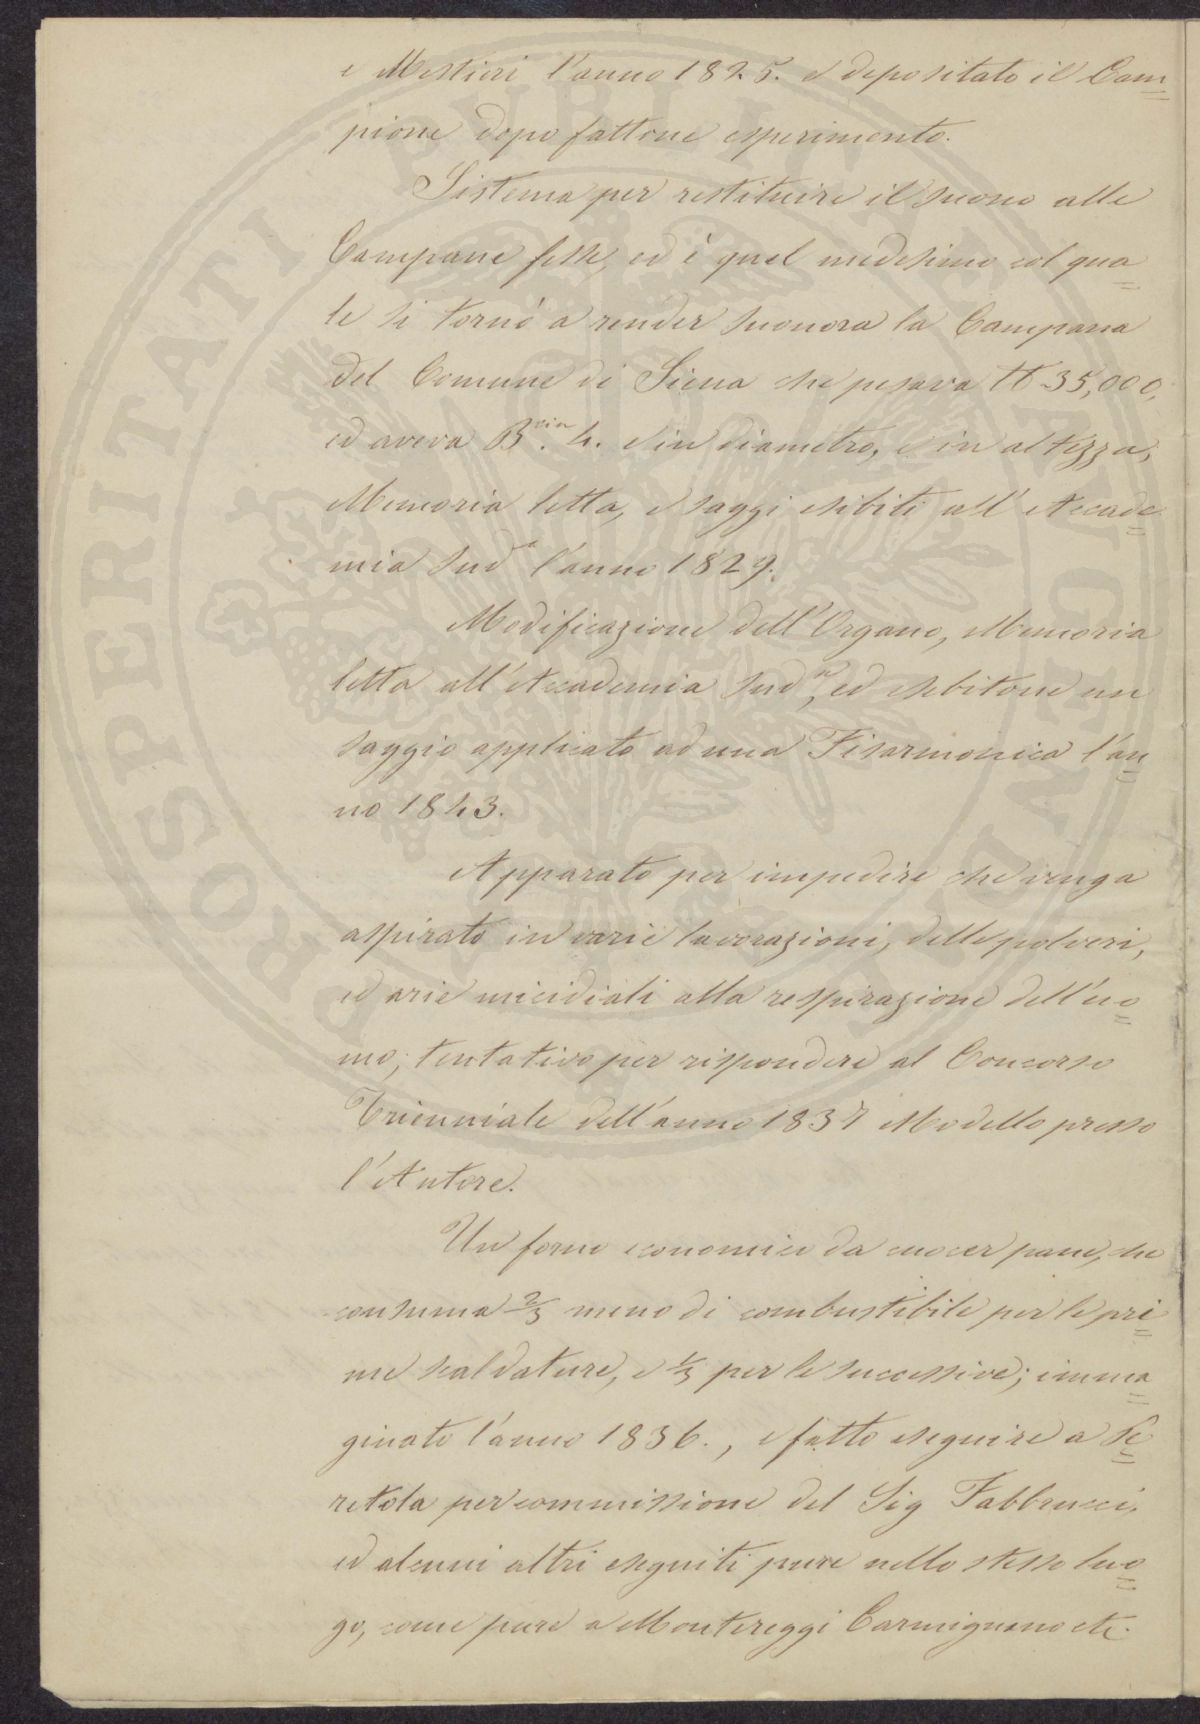 e Mestieri l'anno 1825. e depositato il Cam=
pione dopo fattone esperimento.
Sistema per restituire il suono alle
Campane fesse, ed è quel medesimo col qua=
le si tornò a render suonora la Campana
del Comune di Siena che pesava ℔ 35,000,
ed aveva B.cia 4. e in diametro, e in altezza,
Memoria letta, e saggi esibiti all'Accade=
mia sud.a l'anno 1829.
Modificazione dell'Organo, Memoria
letta all'Accademia sud.a, ed esebitone un
saggio applicato ad una Fisarmonica l'an=
no 1843.
Apparato per impedire che venga
aspirato in varie lavorazioni, delle polveri,
ed arie micidiali alla respirazione dell'uo=
mo; tentativo per rispondere al Concorso
Trienniale dell'anno 1837 Modello presso
l'Autore.
Un forno economico da cuocer pane, che
consuma 2/3 meno di combustibile per le pri=
me scaldature, e 1/3 per le successive; imma=
ginato l'anno 1836., e fatto eseguire a Pe=
retola per commissione del Sig Fabbrucci,
ed alcuni altri eseguiti pure nello stesso luo=
go, come pure a Montereggi Carmignano etc.
PROSPERITATI PVBLICAE AVGENDAE